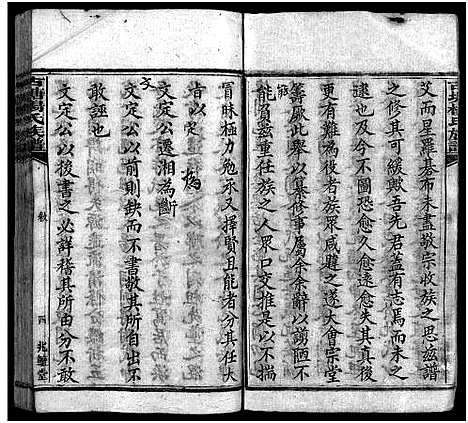 艾而星羅碁布未盡敬宗收族之思茲譜
之修其可緩歟吾先君蓋有志焉而未之
逮也然今不圖恐愈久愈遠愈失其真後
更有難為後者族眾咸韙之遂大會宗堂
籌厥此舉以纂修事屬余余辭以謭陋不
能
能賀茲重任族之人眾口交推是以
冒昧極力勉承又擇賢且能者分其任大
昔以
定
為
文定公遷湘為斷
文
文定公以前則缺而不書敬其所自出不
敢誣也
文定公以後書之必詳稽其所由分不敢
楊氏族譜
敘
四
兆鱣堂